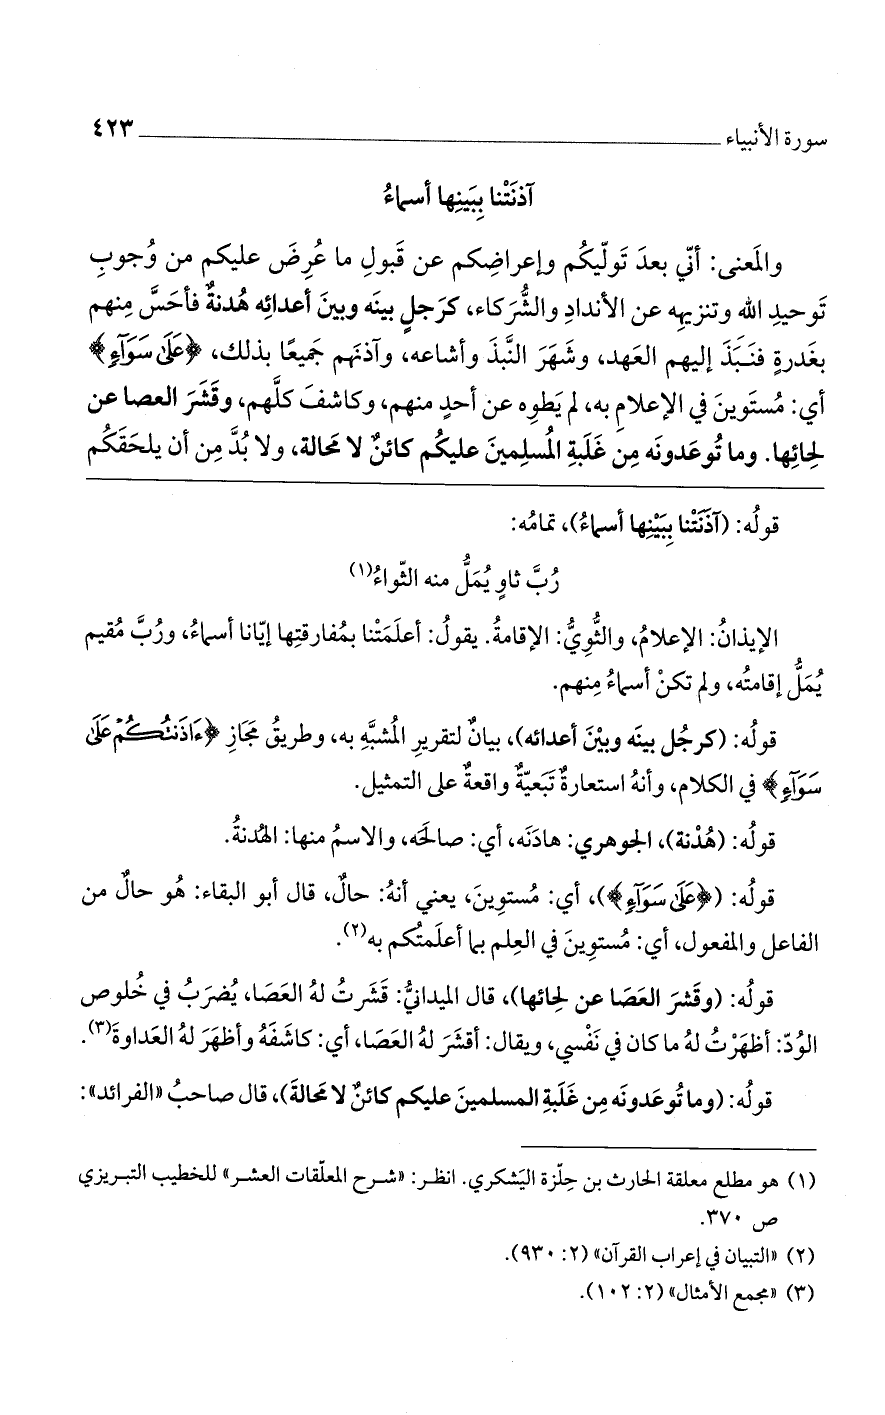 سورة الأنبياء ٤٢٣
آذنَتْنا بِبَينِها أسماءُ
والمَعنى: أنّي بعدَ تَولّيكُم وإعراضِكم عن قَبولِ ما عُرِضَ عليكم من وُجوبِ
تَوحيدِ الله وتنزيهِه عن الأندادِ والشُّرَكاء، كرَجلٍ بينَه وبينَ أعدائِه هُدنةٌ فأحَسَّ مِنهم
بغَدرةٍ فنَبَذَ إليهم العَهد، وشَهَرَ النَّبذَ وأشاعه، وآذنَهم جَميعًا بذلك، ﴿عَلَىٰ سَوَآءٍ﴾
أي: مُستَوينَ في الإعلامِ به، لم يَطوِه عن أحدٍ منهم، وكاشفَ كلَّهم، وقَشَرَ العصا عن
لِحائِها. وما تُوعَدونَه مِن غَلَبةِ المُسلِمينَ عليكُم كائنٌ لا مَحالة، ولا بُدَّ مِن أن يلحَقَكُم
قولُه: (آذَنَتْنا بِبَيْنِها أسماءُ)، تمامُه:
رُبَّ ثاوٍ يُمَلُّ منه الثّواءُ(١)
الإيذانُ: الإعلامُ، والثُّوِيُّ: الإقامةُ. يقولُ: أعلَمَتْنا بمُفارقتِها إيّانا أسماءُ، ورُبَّ مُقيم
يُمَلُّ إقامتُه، ولم تكنْ أسماءُ مِنهم.
قولُه: (كرجُل بينَه وبيْنَ أعدائه)، بيانٌ لتقريرِ المُشبَّهِ به، وطريقُ مَجَازِ ﴿ءَاذَنتُكُمْ عَلَىٰ
سَوَآءٍ﴾ في الكلام، وأنهُ استعارةٌ تَبَعيّةٌ واقعةٌ على التمثيل.
قولُه: (هُدْنة)، الجوهري: هادَنَه، أي: صالحَه، والاسمُ منها: الهُدنةُ.
قولُه: (﴿عَلَىٰ سَوَآءٍ﴾)، أي: مُستوِينَ، يعني أنهُ: حالٌ، قال أبو البقاء: هُو حالٌ من
الفاعل والمفعول، أي: مُستوِينَ في العِلم بما أعلَمتُكم به(٢).
قولُه: (وقَشرَ العَصَا عن لِحائها)، قال الميدانيُّ: قَشَرتُ لهُ العَصَا، يُضرَبُ في خُلوص
الوُدّ: أظهَرْتُ لهُ ما كان في نَفْسي، ويقال: أقشَرَ لهُ العَصَا، أي: كاشَفَهُ وأظهَرَ لهُ العَداوةَ(٣).
قولُه: (وما تُوعَدونَه مِن غَلَبةِ المسلمينَ عليكم كائنٌ لا مَحالةَ)، قال صاحبُ «الفرائد»:
(١) هو مطلع معلقة الحارث بن حِلّزة اليَشكري. انظر: «شرح المعلّقات العشر» للخطيب التبريزي
ص ٣٧٠.
(٢) «التبيان في إعراب القرآن» (٢: ٩٣٠).
(٣) «مجمع الأمثال» (٢: ١٠٢).